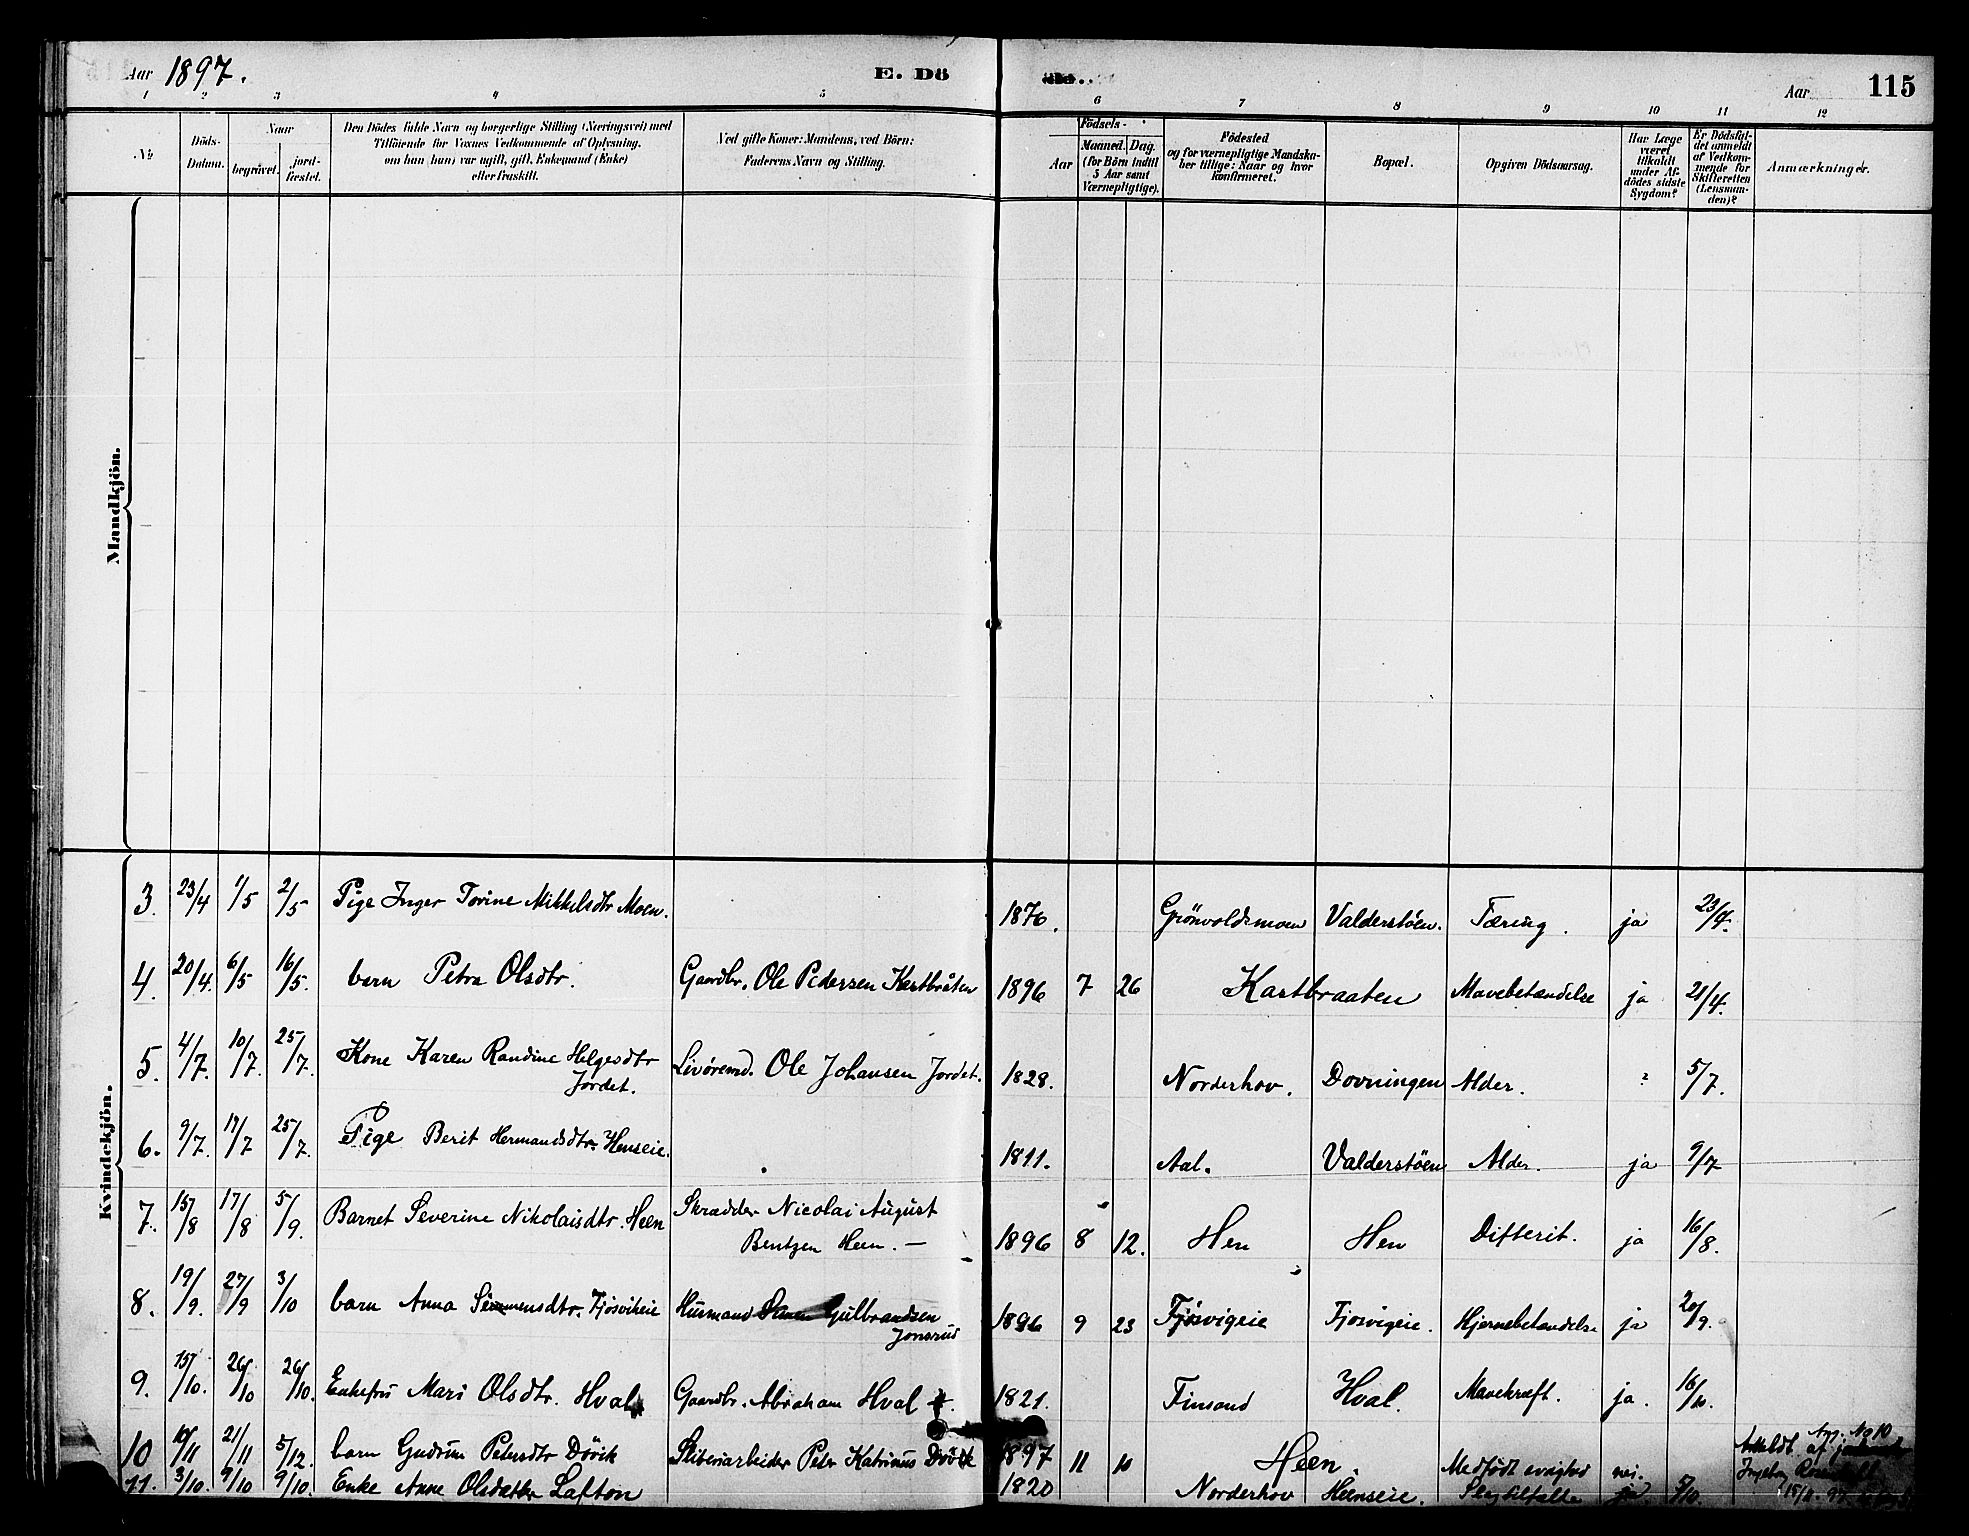 Aar 1897. E. Dö
Aar 115
1 2 3 4 5 6 7 8 9 10 11 12
No
Döds-Datum.
Naar
begravet.
jord-fæstet.
Den Dödes fulde Navn og borgerlige Stilling (Næringsvei) med
Tilföiende for Voxnes Vedkommende af Oplysning.
om han (hun) var ugift, gift, Enkemand (Enke)
eller fraskilt.
Ved gifte Koner: Mandens, ved Börn:
Faderens Navn og Stilling.
Födsels-
Aar
Maaned. Dag.
(for Börn indtil
5 Aar samt
Værnepligtige).
Födested
og for værnepligtige Mandska-
ber tillige: Naar og hvor
konfirmeret.
Bopæl.
Opgiven Dödsaarsag.
Har Læge
været
tilkaldt
under Af-
dödes sidste
Sygdom?
Er Dödsfal-
det anmeldt
af Vedkom-
mende for
Skifteretten
(Lensman-
den)?
Anmærkninger.
Mandkjön.
Kvindekjön.
3. 23/4 1/5 2/5 Pige Inger Torine Mikkelsdtr Moen. 1876. Grönvoldsmoen Valderstöen. Tæring. ja 23/4.
4. 20/4. 6/5 16/5. barn Petra Olsdtr. Gaardbr. Ole Pedersen Kartbråten 1896 7 26 Kartbraaten Mavebetændelse ja 21/4.
5. 4/7. 10/7. 25/7. Kone Karen Randine Helgesdtr
Jordet. Ole Johansen Jordet. 1828. Norderhov. Dovningen Alder. 5/7.
6. 9/7. 17/7 25/7. Pige Berit Hermandsdtr. Henseie. 1811. Aal. Valderstöen Alder. ja 9/7
7. 15/8 17/8 5/9. Barnet Severine Nikolaisdtr. Heen Skrædder Nicolai August
Bentzen Heen. — 1896 8 12. Hen Hen Difterit. ja 16/8.
8. 19/9. 27/9 3/10 barn Anna Simmensdtr. Fjösvikeie Husmand Gulbrandsen
Jonsrud 1896 9 23 Fjösvigeie Fjösvigeie. Hjernebetændelse ja 20/9.
9. 15/10. 26/10 26/10. Enkefru Mari Olsdtr. Hval Gaardbr. Abraham Hval 1821. Finsand Hval. Mavekræft. ja. 16/10.
10 10/11 21/11 5/12. barn Gudrun Petersdtr Dövik Sliberiarbeider Peter Katrinus Dövik 1897 11 10 Heen. Medfödt svaghed nei. Anm. No 10
11. 3/10. 9/10 9/10. Enke Anne Olsdatter Lafton 1820 Norderhov Heenseie. ja 5/10.